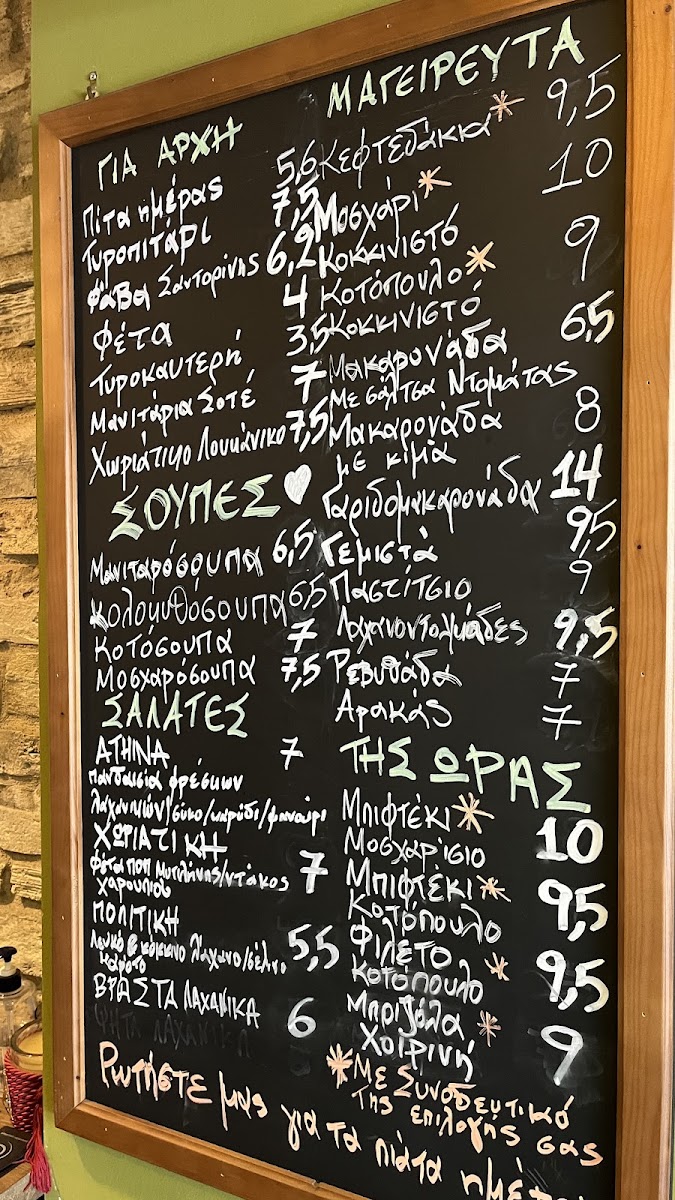 ΓΙΑ ΑΡΧΗ
Πίτα ημέρας 5,6
Τυροπιτάρι 7,5
Φάβα Σαντορίνης 6,2
Φέτα 4
Τυροκαυτερή 3,5
Μανιτάρια Σοτέ 7
Χωριάτικο Λουκάνικο 7,5
ΣΟΥΠΕΣ
Μανιταρόσουπα 6,5
Κολοκυθόσουπα 6,5
Κοτόσουπα 7
Μοσχαρόσουπα 7,5
ΣΑΛΑΤΕΣ
ΑΤΗΙΝΑ 7
πανδαισία φρέσκων
λαχανικών/σύκο/καρύδι/φανούρι
ΧΩΡΙΑΤΙΚΗ
Φέτα ΠΟΠ Μυτιλήνης/ντάκος 7
χαρουπιού
ΠΟΛΙΤΙΚΗ
Λευκό & κόκκινο λάχανο/σέλινο 5,5
καρότο
ΒΡΑΣΤΑ ΛΑΧΑΝΙΚΑ 6
ΨΗΤΑ ΛΑΧΑΝΙΚΑ
ΜΑΓΕΙΡΕΥΤΑ
Κεφτεδάκια* 9,5
Μοσχάρι* 10
Κοκκινιστό
Κοτόπουλο* 9
Κοκκινιστό
Μακαρονάδα 6,5
Με σάλτσα Ντομάτας
Μακαρονάδα 8
με κιμά
Γαριδομακαρονάδα 14
Γεμιστά 9,5
Παστίτσιο 9
Λαχανοντολμάδες 9,5
Ρεβυθάδα 7
Αρακάς 7
ΤΗΣ ΩΡΑΣ
Μπιφτέκι* 10
Μοσχαρίσιο
Μπιφτέκι* 9,5
Κοτόπουλο
Φιλέτο* 9,5
Κοτόπουλο
Μπριζόλα* 9
Χοιρινή
*Με Συνοδευτικό
της επιλογής σας
Ρωτήστε μας για τα πιάτα ημέρ